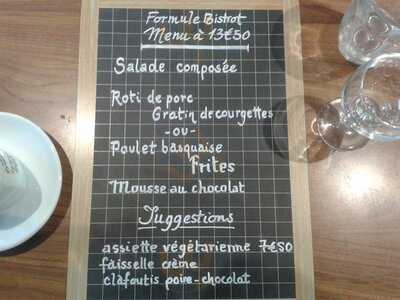 Formule Bistrot
Menu à 13€50
Salade composée
Roti de porc
Gratin de courgettes
-ou-
Poulet basquaise
frites
Mousse au chocolat
Suggestions
assiette végétarienne 7€50
faisselle crème
clafoutis poire-chocolat